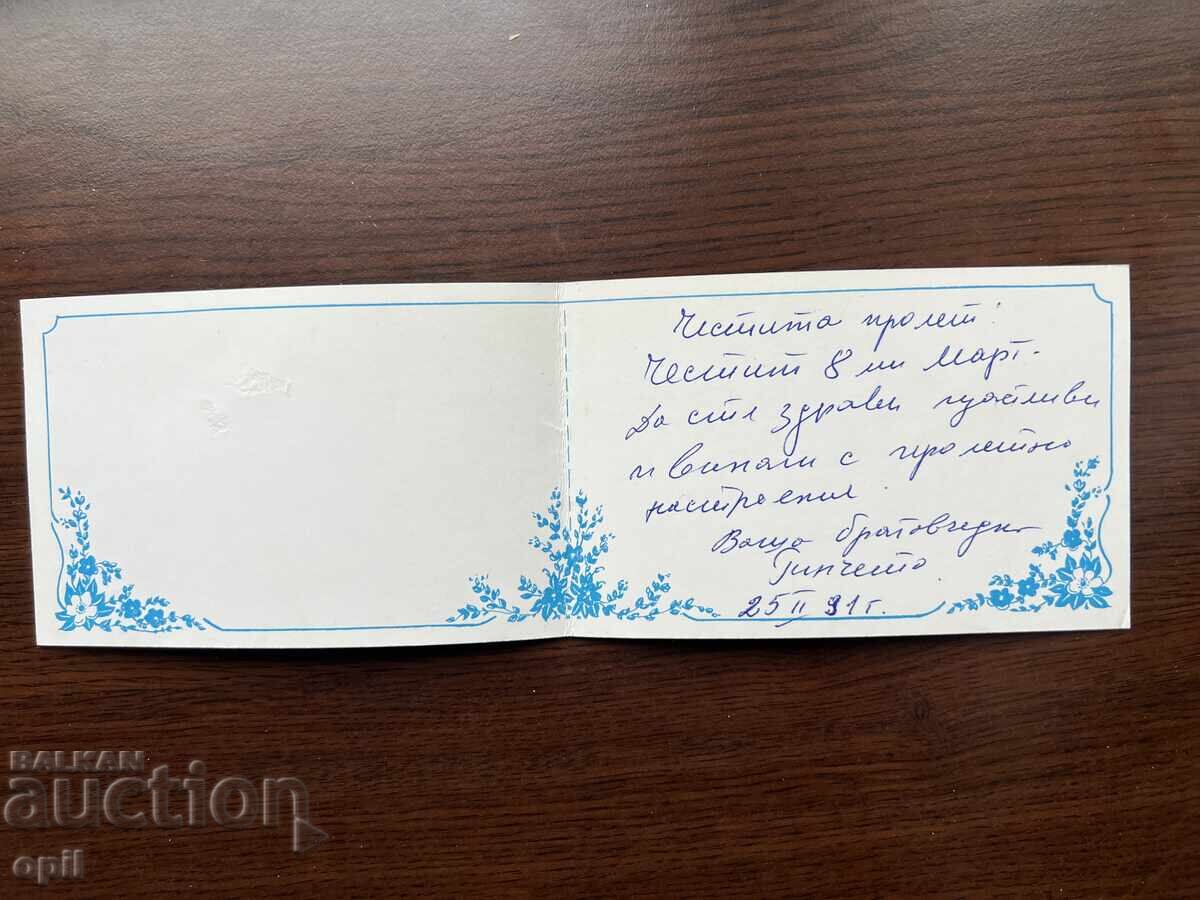 Честита пролет!
Честит 8 ми Март.
Да сте здрави щастливи
и винаги с пролетно
настроение
Ваша братовчедка
Гинчето
25 II 91 г.
BALKAN
auction
opil